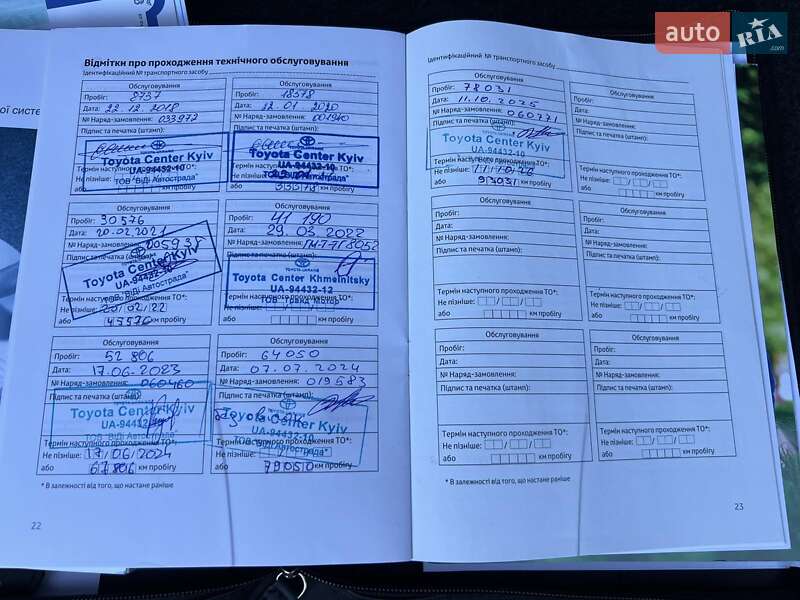 auto RIA .com
ої систе
Відмітки про проходження технічного обслуговування
Ідентифікаційний № транспортного засобу
Обслуговування
Пробіг: 8757
Дата: 22.12.2018
№ Наряд-замовлення: 033972
Підпис та печатка (штамп):
Toyota Center Kyiv
UA-94432-10
ТОВ "ВіДі Автострада"
Термін наступного проходження ТО*:
Не пізніше:
або км пробігу
Обслуговування
Пробіг: 18578
Дата: 22.01 2020
№ Наряд-замовлення: 001940
Підпис та печатка (штамп):
Toyota Center Kyiv
UA-94432-10
ТОВ "ВіДі Автострада"
Не пізніше:
або 33578 км пробігу
Обслуговування
Пробіг: 30576
Дата: 20.02.2021
№ Наряд-замовлення: 005938
Підпис та печатка (штамп):
Toyota Center Kyiv
UA-94432-10
ТОВ "ВіДі Автострада"
Термін наступного проходження ТО*:
Не пізніше: 20/02/22
або 45576 км пробігу
Обслуговування
Пробіг: 41 190
Дата: 29.03 2022
№ Наряд-замовлення:
Підпис та печатка (штамп):
TOYOTA-UKRAINE
Toyota Center Khmelnitsky
UA-94432-12
Термін наступного проходження ТО*:
Не пізніше:
або км пробігу
Обслуговування
Пробіг: 52 806
Дата: 17.06.2023
№ Наряд-замовлення: 060460
Підпис та печатка (штамп):
Toyota Center Kyiv
UA-94432-10
ТОВ "ВіДі Автострада"
Термін наступного проходження ТО*:
Не пізніше: 17/06/2024
або 67806 км пробігу
Обслуговування
Пробіг: 64050
Дата: 07.07.2024
№ Наряд-замовлення: 019583
Підпис та печатка (штамп):
Toyota Center Kyiv
UA-94432-10
ТОВ "ВіДі Автострада"
Не пізніше:
або 79050 км пробігу
* В залежності від того, що настане раніше
22
Ідентифікаційний № транспортного засобу
Обслуговування
Пробіг: 78031
Дата: 11.10.2025
№ Наряд-замовлення: 060771
Підпис та печатка (штамп):
Toyota Center Kyiv
UA-94432-10
ТОВ "ВіДі Автострада"
Термін наступного проходження ТО*:
Не пізніше: 11/10/26
або 93031 км пробігу
Обслуговування
Пробіг:
Дата:
№ Наряд-замовлення:
Підпис та печатка (штамп):
Термін наступного проходження ТО*:
Не пізніше:
або км пробігу
Обслуговування
Пробіг:
Дата:
№ Наряд-замовлення:
Підпис та печатка (штамп):
Термін наступного проходження ТО*:
Не пізніше:
або км пробігу
Обслуговування
Пробіг:
Дата:
№ Наряд-замовлення:
Підпис та печатка (штамп):
Термін наступного проходження ТО*:
Не пізніше:
або км пробігу
Обслуговування
Пробіг:
Дата:
№ Наряд-замовлення:
Підпис та печатка (штамп):
Термін наступного проходження ТО*:
Не пізніше:
або км пробігу
Обслуговування
Пробіг:
Дата:
№ Наряд-замовлення:
Підпис та печатка (штамп):
Термін наступного проходження ТО*:
Не пізніше:
або км пробігу
* В залежності від того, що настане раніше
23